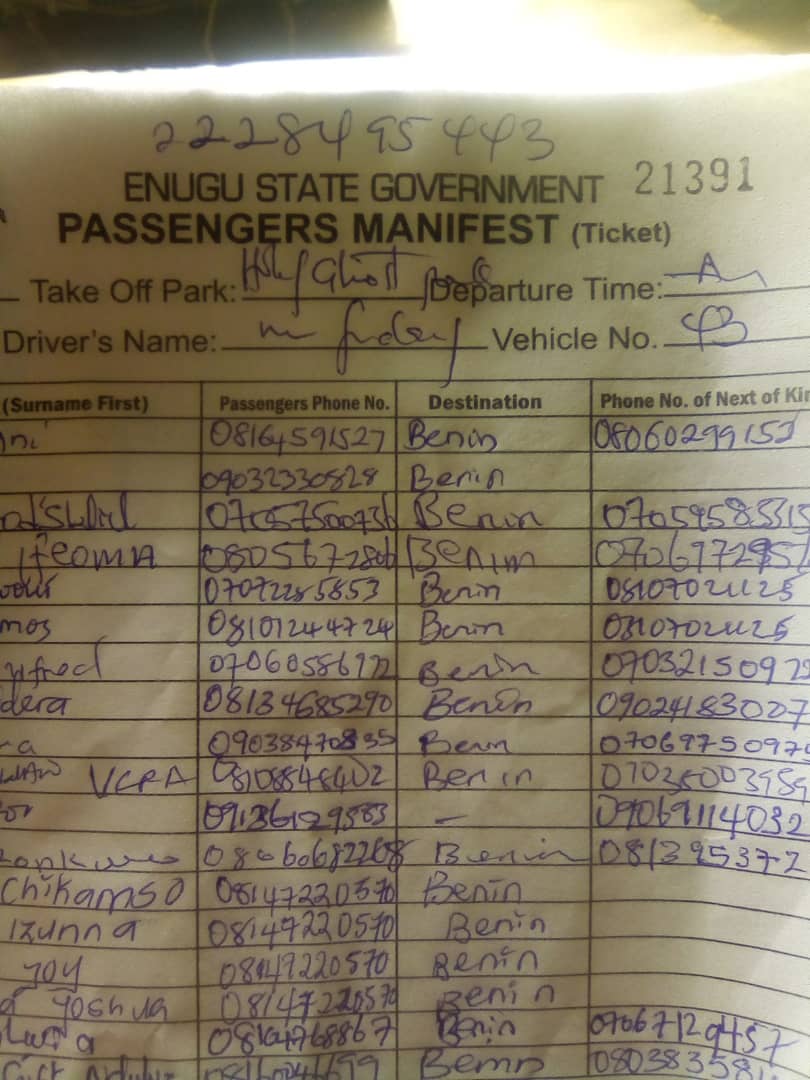 2228495443
ENUGU STATE GOVERNMENT 21391
PASSENGERS MANIFEST (Ticket)
Take Off Park: Holy Ghost park Departure Time:
Driver's Name: Mr Vehicle No. 43
(Surname First) Passengers Phone No. Destination Phone No. of Next of Kin
ani 08164591527 Benin 08060299152
09032330828 Benin
07057500736 Benin 07059585315
ifeoma 08056772806 Benin
07072285853 Benin 08107021125
mos 08101244724 Benin 08107021125
nifred Benin 0703215092
dera 08134685290 Benin 09024183007
ra 09038470835 Benin 0706975097
VCRA 08108848402 Benin 07035003959
or 09136129583 - 09069114032
08060682208 Benin 081395372
Chikamso 08147220570 Benin
Izunna 08147220570 Benin
Joy 08147220570 Benin
Joshua 08147220570 Benin
08164768867 Benin 07067129457
Benin 080383581